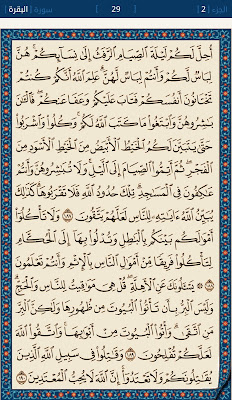 الجزء | 2 | 29 | سورة | البقرة
أُحِلَّ لَكُمْ لَيْلَةَ ٱلصِّيَامِ ٱلرَّفَثُ إِلَىٰ نِسَآئِكُمْ ۚ هُنَّ
لِبَاسٌ لَّكُمْ وَأَنتُمْ لِبَاسٌ لَّهُنَّ ۗ عَلِمَ ٱللَّهُ أَنَّكُمْ كُنتُمْ
تَخْتَانُونَ أَنفُسَكُمْ فَتَابَ عَلَيْكُمْ وَعَفَا عَنكُمْ ۖ فَٱلْـَٰٔنَ
بَـٰشِرُوهُنَّ وَٱبْتَغُوا۟ مَا كَتَبَ ٱللَّهُ لَكُمْ ۚ وَكُلُوا۟ وَٱشْرَبُوا۟
حَتَّىٰ يَتَبَيَّنَ لَكُمُ ٱلْخَيْطُ ٱلْأَبْيَضُ مِنَ ٱلْخَيْطِ ٱلْأَسْوَدِ مِنَ
ٱلْفَجْرِ ۖ ثُمَّ أَتِمُّوا۟ ٱلصِّيَامَ إِلَى ٱلَّيْلِ ۚ وَلَا تُبَـٰشِرُوهُنَّ وَأَنتُمْ
عَـٰكِفُونَ فِى ٱلْمَسَـٰجِدِ ۗ تِلْكَ حُدُودُ ٱللَّهِ فَلَا تَقْرَبُوهَا ۗ كَذَٰلِكَ
يُبَيِّنُ ٱللَّهُ ءَايَـٰتِهِۦ لِلنَّاسِ لَعَلَّهُمْ يَتَّقُونَ ١٨٧ وَلَا تَأْكُلُوٓا۟
أَمْوَٰلَكُم بَيْنَكُم بِٱلْبَـٰطِلِ وَتُدْلُوا۟ بِهَآ إِلَى ٱلْحُكَّامِ
لِتَأْكُلُوا۟ فَرِيقًا مِّنْ أَمْوَٰلِ ٱلنَّاسِ بِٱلْإِثْمِ وَأَنتُمْ تَعْلَمُونَ
١٨٨ يَسْـَٔلُونَكَ عَنِ ٱلْأَهِلَّةِ ۖ قُلْ هِىَ مَوَٰقِيتُ لِلنَّاسِ وَٱلْحَجِّ ۗ
وَلَيْسَ ٱلْبِرُّ بِأَن تَأْتُوا۟ ٱلْبُيُوتَ مِن ظُهُورِهَا وَلَـٰكِنَّ ٱلْبِرَّ
مَنِ ٱتَّقَىٰ ۗ وَأْتُوا۟ ٱلْبُيُوتَ مِنْ أَبْوَٰبِهَا ۚ وَٱتَّقُوا۟ ٱللَّهَ
لَعَلَّكُمْ تُفْلِحُونَ ١٨٩ وَقَـٰتِلُوا۟ فِى سَبِيلِ ٱللَّهِ ٱلَّذِينَ
يُقَـٰتِلُونَكُمْ وَلَا تَعْتَدُوٓا۟ ۚ إِنَّ ٱللَّهَ لَا يُحِبُّ ٱلْمُعْتَدِينَ ١٩٠